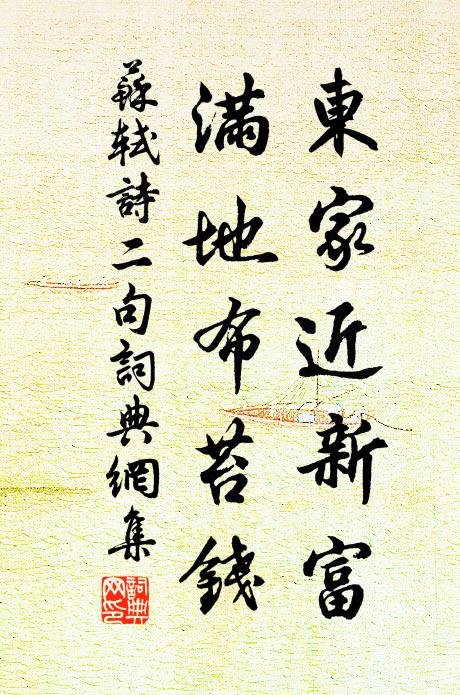 東家近新富
滿地布苔錢
蘇軾詩二句詞典網集
詞典網印